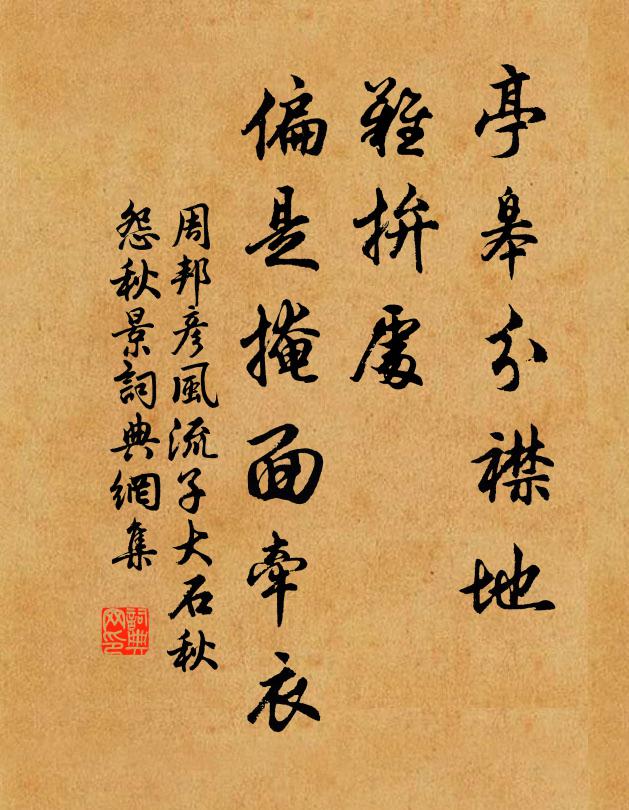 亭皋分襟地
難拚處
偏是掩面牽衣
周邦彥風流子大石秋
怨秋景詞典網集
詞典
网印